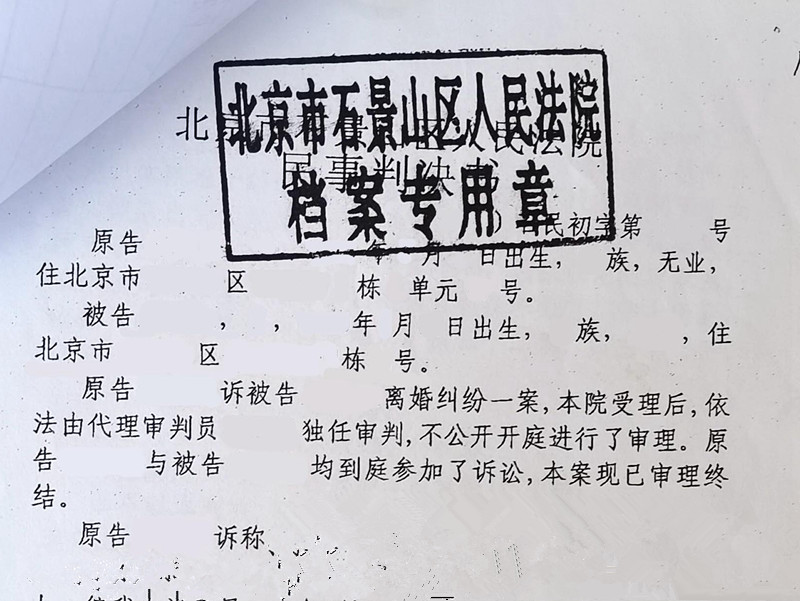 北京市石景山区人民法院
档案专用章
北京市石景山区人民法院
民事判决书
民初字第 号
原告 年 月 日出生, 族,无业,
住北京市 区 栋 单元 号。
被告 , , 年 月 日出生, 族, ,住
北京市 区 栋 号。
原告 诉被告 离婚纠纷一案,本院受理后,依
法由代理审判员 独任审判,不公开开庭进行了审理。原
告 与被告 均到庭参加了诉讼,本案现已审理终
结。
原告 诉称、